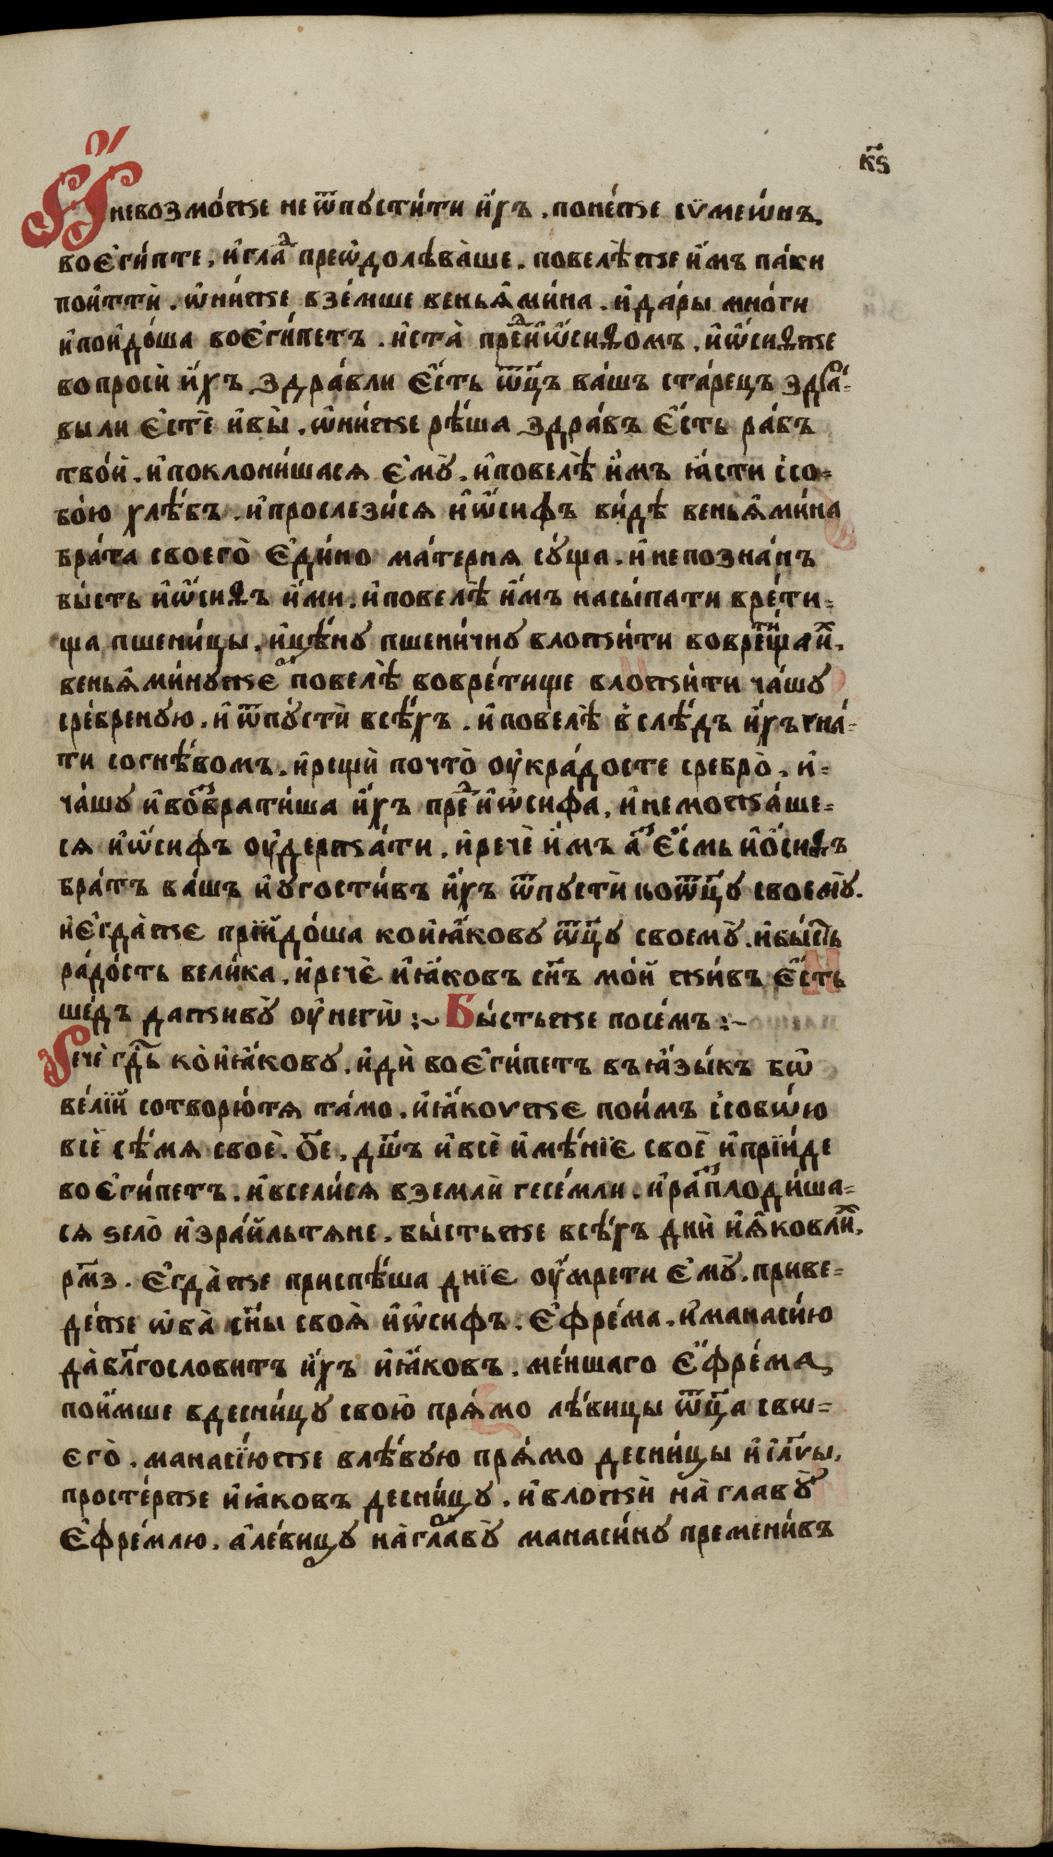 к҃ѕ
И҆ невозмо́же не ѿпꙋсти́ти и҆́хъ . поне́же сѵмеѡ́нъ
во є҆ги́пте , и҆ гла́д преѡдолѣва̀ше . повелѣ́ же и҆́мъ па́ки
поити̑ . ѡ҆ни́ же взе́мше веньꙗ҆ми́на . и҆ да́ры мно́ги
и҆ поидо́ша во є҆ги́петъ . и҆ ста̀ пре́д и҆ѡ҆́сиѳомъ , и҆ѡ҆́сиѳ же
вопросѝ и҆́хъ здра́вли є҆́сть ѿц҃ъ ва́шъ ста́рецъ здра́-
вы ли є҆стѐ и҆ вы̀ . ѡ҆ни́ же рѣ́ша здра́въ є҆́сть ра́бъ
тво́й . и҆ поклони́шася є҆мꙋ̀ . и҆ повелѣ̀ и҆́мъ ꙗ҆́сти с собо-
бо́ю хлѣ́бъ . и҆ прослези́ся и҆ѡ҆́сифъ ви́дѣ веньꙗ҆ми́на
бра́та своего̀ є҆ди́но ма́терня сꙋ́ща . и҆ непозна́нъ
бы́сть и҆ѡ҆́сиѳъ и҆́ми . и҆ повелѣ̀ и҆́мъ насы́пати вре́ти-
ща пшени́цы , и҆ цѣ́нꙋ пшени́чнꙋ вложи́ти во вре́тища и҆́х .
веньꙗ҆ми́нꙋ же повелѣ̀ во вре́тище вложи́ти ча́шꙋ
сре́бренꙋю . и҆ ѿпꙋстѝ всѣ́хъ . и҆ повелѣ̀ в слѣ́дъ и҆́хъ гна́-
ти со гнѣ́вомъ . и҆ рещѝ почто̀ ᲂу҆кра́досте сребро̀ , и҆-
ча́шꙋ и҆ возврати́ша и҆́хъ пре́д и҆ѡ҆́сифа , и҆ не можа́ше-
ся и҆ѡ҆́сифъ ᲂу҆держа́ти , и҆ речѐ и҆́мъ а҆́з є҆́смь и҆ѻ҆́сиѳъ
бра́тъ ва́шъ и҆ ᲂу҆гости́въ и҆́хъ ѿпꙋстѝ ко ѿц҃ꙋ своемꙋ̀ .
и҆ є҆гда̀ же прїидо́ша ко и҆ꙗ҆́ковꙋ ѿц҃ꙋ своемꙋ̀ . и҆ бы́сть
ра́дость вели́ка . и҆ речѐ и҆ꙗ҆́ковъ сн҃ъ мо́й жи́въ є҆́сть
ше́дъ да живꙋ̀ ᲂу҆ негѡ̀ :~ Бы́сть же посе́мъ :~
Речѐ гдⷭ҇ь ко̀ и҆ꙗ҆́ковꙋ , и҆дѝ во є҆ги́петъ въ ꙗ҆зы́къ бѡ
ве́лїй сотворю́тя та́мо . и҆ꙗ҆́ковꙋ же пои́мъ с собѡ́ю
всѐ сѣ́мя своѐ . о҃е , дꙋ́шъ и҆ всѐ и҆мѣ́нїє своѐ и҆ прїи́де
во є҆ги́петъ . и҆ всели́ся в землѝ гесе́мли . и҆ расплоди́ша-
ся ѕело̀ и҆зра́йльтяне . бы́сть же всѣ́хъ дні́й и҆ꙗ҆́ковлих .
рм҃з . є҆гда̀ же приспѣ́ша дни́є ᲂу҆мре́ти є҆мꙋ̀ . приве-
де́ же ѡ҆ба̀ сн҃ы своѧ̀ и҆ѡ҆́сифъ . є҆фре́ма . и҆ манаси́ю
да̀ бл҃гословитъ и҆́хъ и҆ꙗ҆́ковъ . ме́ншаго є҆фре́ма
пои́мше в десни́цꙋ свою̀ пря́мо лѣ́вицы ѿц҃а свѡ-
єго̀ . манасі́ю же в лѣ́вꙋю пря́мо десни́цы и҆сл҃вы ,
просте́р же и҆ꙗ҆́ковъ десни́цꙋ . и҆ вложѝ на̀ главꙋ̀
є҆фре́млю . а҆ ле́вицꙋ на̀ главꙋ̀ манаси́нꙋ премени́въ